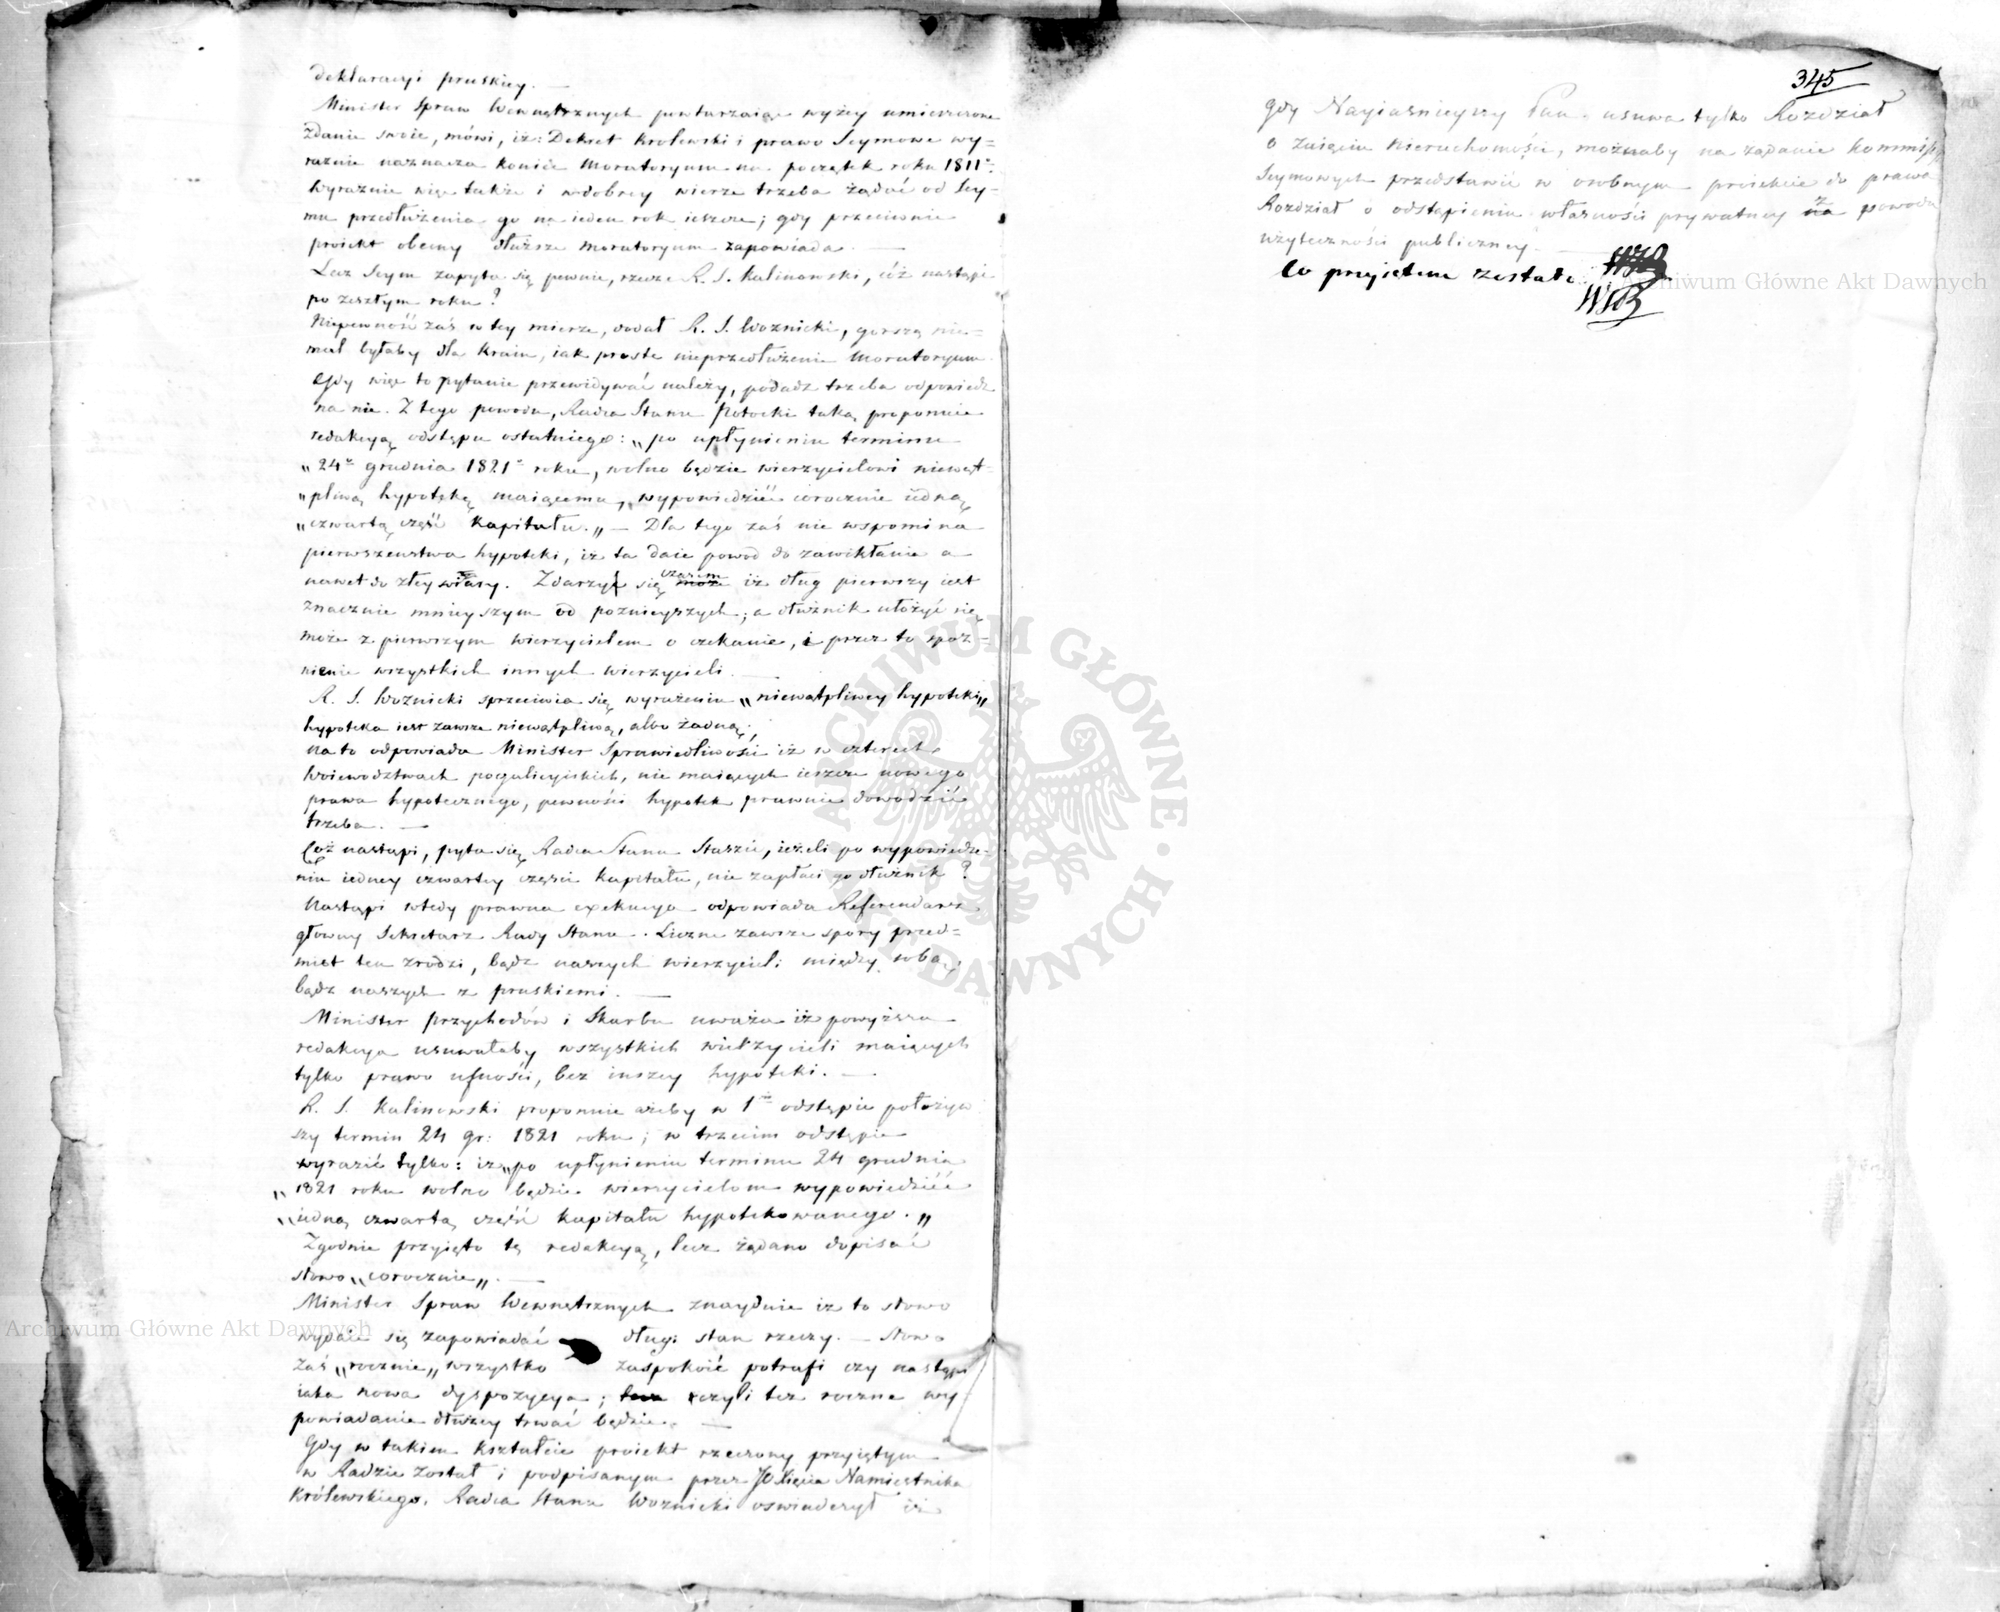 deklaracyi pruskiey. —
Minister Spraw Wewnętrznych powtarzaiąc wyżey umieszczone
zdanie swoie, mówi, iż: Dekret Krolewski i prawo Seymowe wy=
raźnie naznacza koniec Moratoryum na początek roku 1811º:
Wyraźnie więc także i w dobrey wierze trzeba żądać od Sey=
mu przedłużenia go na ieden rok ieszcze; gdy przeciwnie
proiekt obecny dłuższe moratoryum zapowiada. —
Lecz Seym zapyta się pewnie, rzecze R. S. Kalinowski, cóż nastąpi
po zeszłym roku?
Niepewność zaś w tey mierze, dodał R. S. Woznicki, gorszą nie=
mal byłaby dla Kraiu, iak proste nieprzedłużenie Moratoryum.
Gdy więc to pytanie przewidywać należy, podadz trzeba odpowiedz
na nie. Z tego powodu, Radca Stanu Potocki taką proponuie
redakcyą odstępu ostatniego: „po upłynieniu terminu
„24º grudnia 1821º roku, wolno będzie wierzycielowi niewąt=
„pliwą hypotekę maiącemu, wypowiedzieć corocznie iedną
„czwartą część Kapitału.„ — Dla tego zaś nie wspomina
pierwszenstwa hypoteki, iż ta daie powod do zawikłania a
nawet do złey wiary. Zdarzy się czasem może iż dług pierwszy iest
znacznie mnieyszym od poznieyszych; a dłużnik ułożyć się
może z pierwszym wierzycielem o czekanie, i przez to spoz=
nienie wszystkich innych wierzycieli. —
R. S. Woznicki sprzeciwia się wyrażeniu „niewątpliwey hypoteki„
hypoteka iest zawsze niewątpliwą, albo żadną;
na to odpowiada Minister Sprawiedliwości iż w czterech
Woiewodztwach pogalicyiskich, nie maiących ieszcze nowego
prawa hypotecznego, pewności hypotek prawnie dowodzić
trzeba. —
Coż nastąpi, pyta się Radca Stanu Staszic, ieżeli po wypowiedze=
niu iedney czwartey części Kapitału, nie zapłaci go dłużnik?
Nastąpi wtedy prawna exekucya odpowiada Referendarz
główny Sekretarz Rady Stanu. Liczne zawsze spory przed=
miot ten zrodzi, bądz naszych wierzycieli między sobą,
bądz naszych z pruskiemi. —
Minister przychodów i Skarbu uważa iż powyższa
redakcya usuwałaby wszystkich wierzycieli maiących
tylko prawo ufności, bez inszey hypoteki. —
R. S. Kalinowski proponuie ażeby w 1m odstępie położyw
szy termin 24 gr: 1821 roku; w trzecim odstępie
wyrazić tylko: iż „po upłynieniu terminu 24 grudnia
„1821 roku wolno będzie wierzycielom wypowiedzieć
„iedną czwartą część kapitału hypotekowanego.„
Zgodnie przyięto tę redakcyą, lecz żądano dopisać
słowo „corocznie„. —
Minister Spraw Wewnętrznych znayduie iż to słowo
wydaie się zapowiadać długi stan rzeczy. — Słowo
zaś „rocznie„ wszystko zaspokoić potrafi czy nastąpi
iaka nowa dyspozycya; lecz czyli też roczne wy
powiadanie dłużey trwać będzie. —
Gdy w takiem kształcie proiekt rzeczony przyiętym
w Radzie został i podpisanym przez JO Xięcia Namiestnika
Królewskiego. Radca Stanu Woznicki oswiadczył iż
345
gdy Nayiaśnieyszy Pan usuwa tylko Rozdział
o zaięciu nieruchomości, możnaby na żądanie Kommissyi
Seymowych przedstawić w osobnym proiekcie do prawa
Rozdział o odstąpieniu własności prywatney na z powodu
użyteczności publiczney. —
Co przyjętem zostało.
Archiwum Główne Akt Dawnych
ARCHIWUM GŁÓWNE · AKT DAWNYCH ·
Archiwum Główne Akt Dawnych